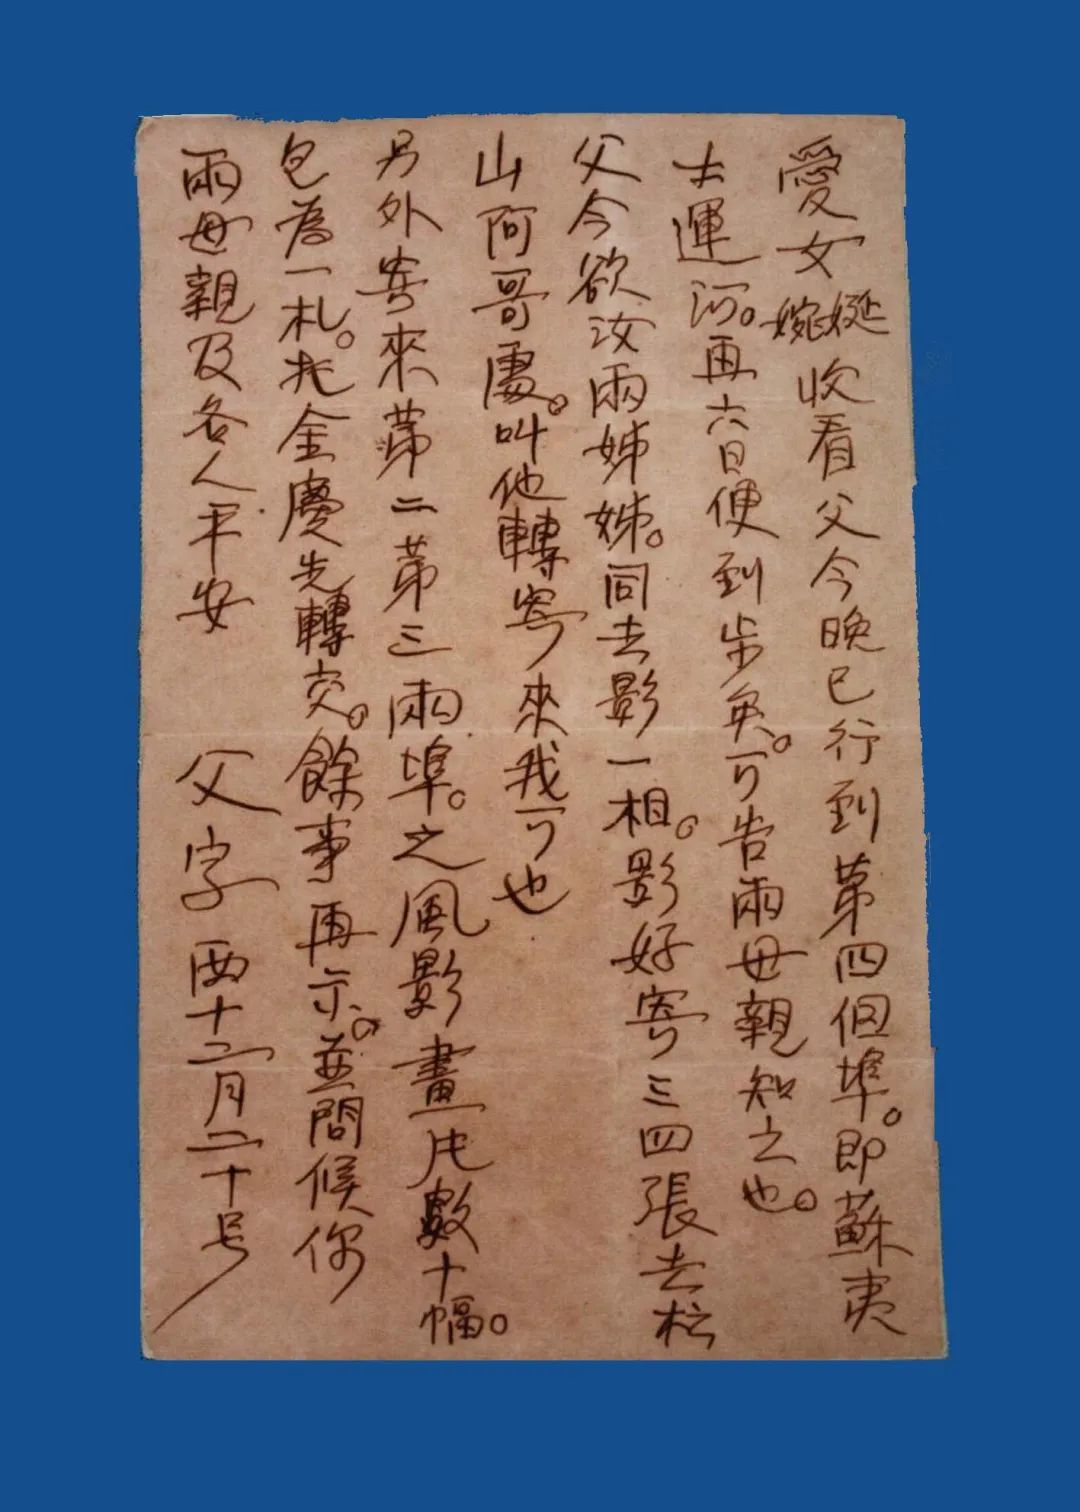 愛女娫婉收看父今晚已行到第四個埠。即蘇夷
士運河。再六日便到步矣。可告兩母親知之也。
父今欲汝兩姊姊。同去影一相。影好寄三四張去
山阿哥處。叫他轉寄來我可也
另外寄來第二第三兩埠。之風影畫片數十幅。
包為一札。托金慶先轉交。餘事再示。並問候你
兩母親及各人平安 父字 西十二月二十号